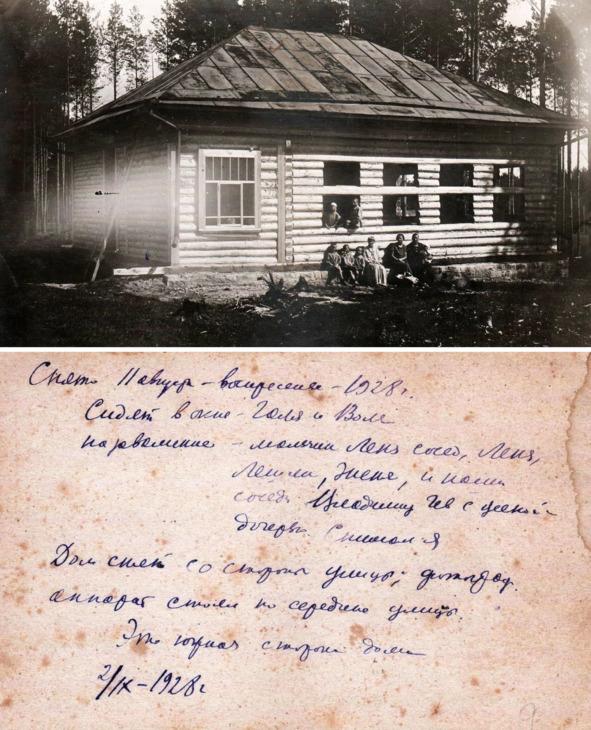 Снято 11 август – воскресение – 1928 г.
Сидят в окне – Галя и Воля
на завалинке – мальчик Леня сосед, Леня,
и наши
соседи Владимир с женой и
дочерью. Снимал я
Дом снят со стороны улицы, фотограф.
аппарат стоял по середине улицы.
Это южная сторона дома
2/IX – 1928 г